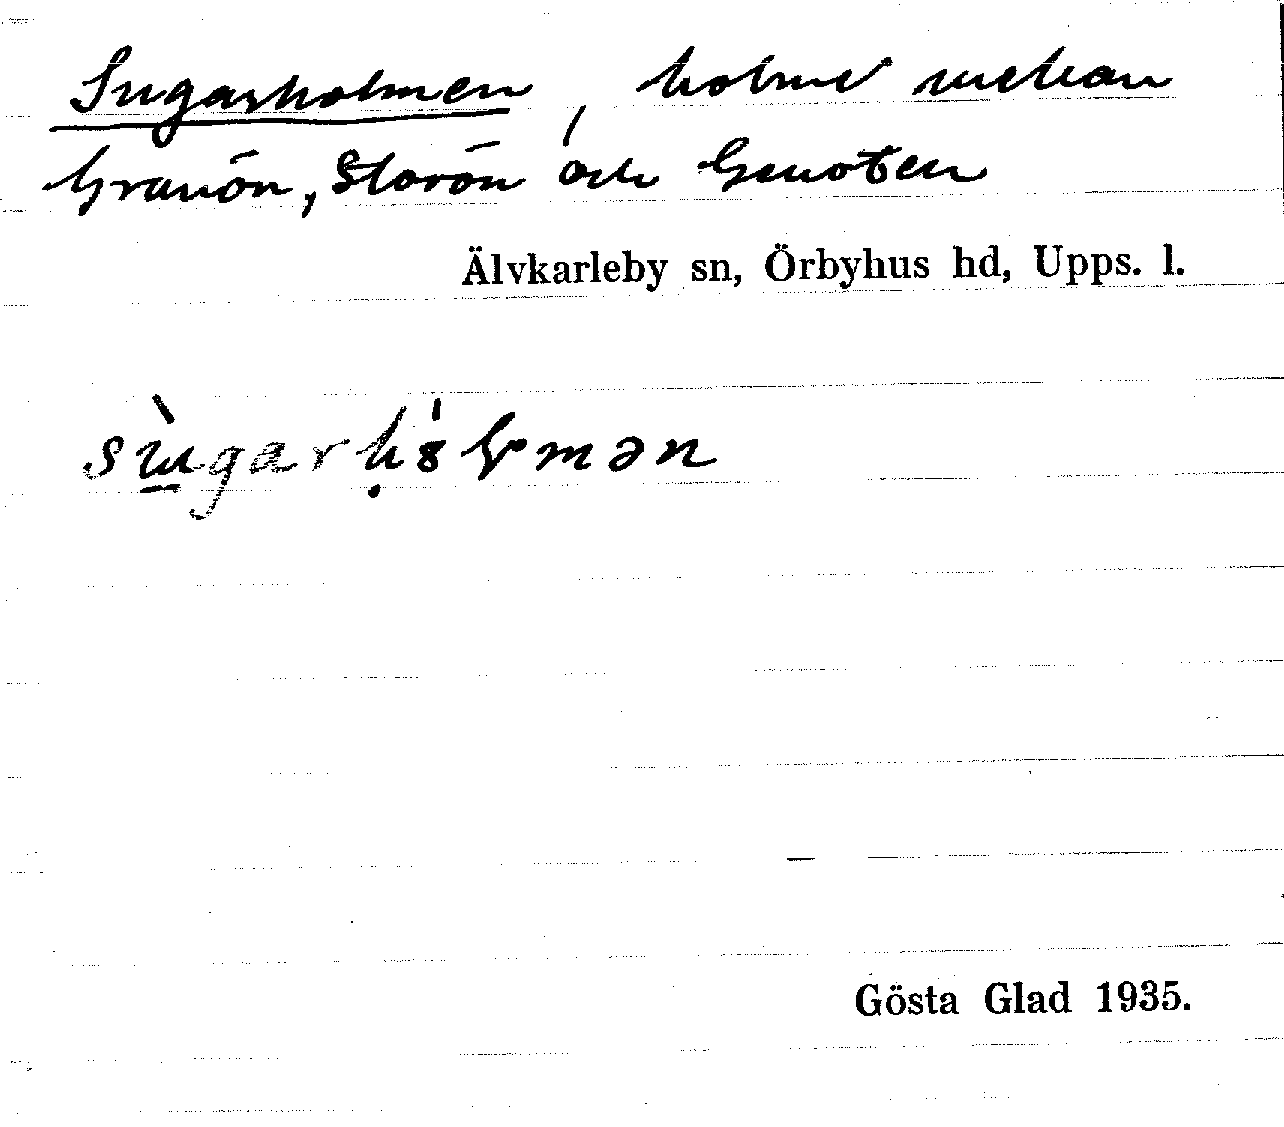 Sugarholmen, holme mellan
Granön, Storön och Genoten
Älvkarleby sn, Örbyhus hd, Upps. l.
sùgarhólmən
Gösta Glad 1935.